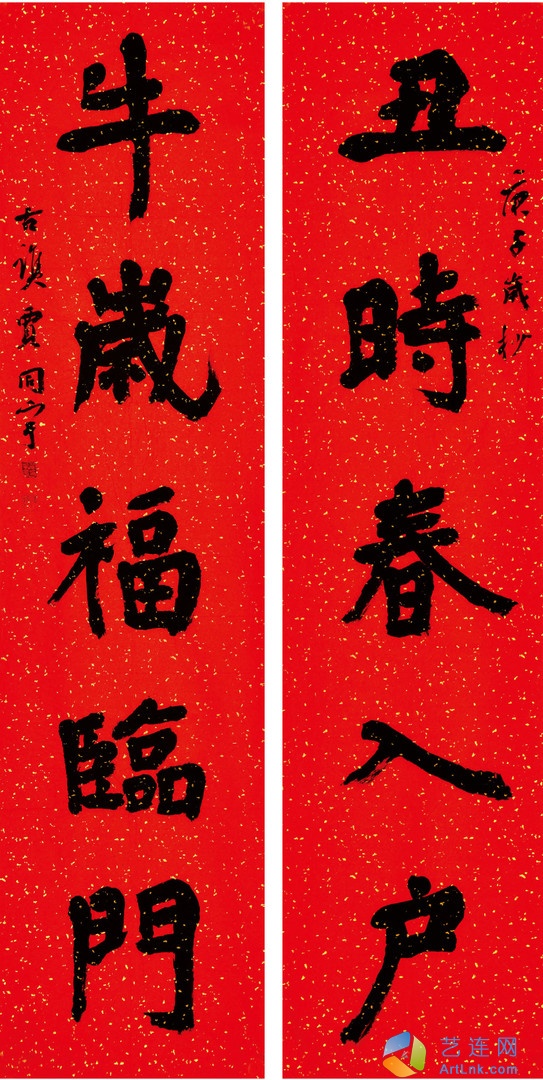 丑時春入户
庚子歲抄
牛歲福臨門
古滇賈同寫
艺连网
ArtLnk.com